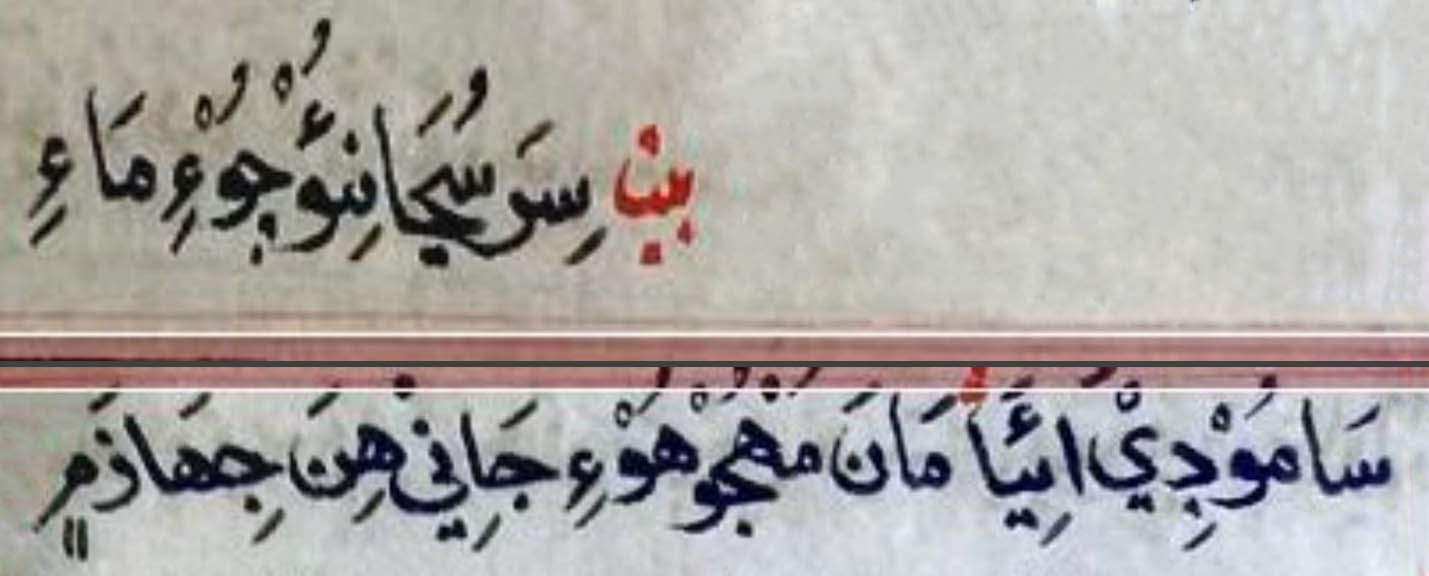 بيٽ سِرَ سُيَجَانِئو جُوْءِ مَاءِ
سَا مَوْدِيْ اِئَيَا مَانَ مُهْجوْ هُوْءِ جَانِيْ هِنَ جِهَازَمٍ